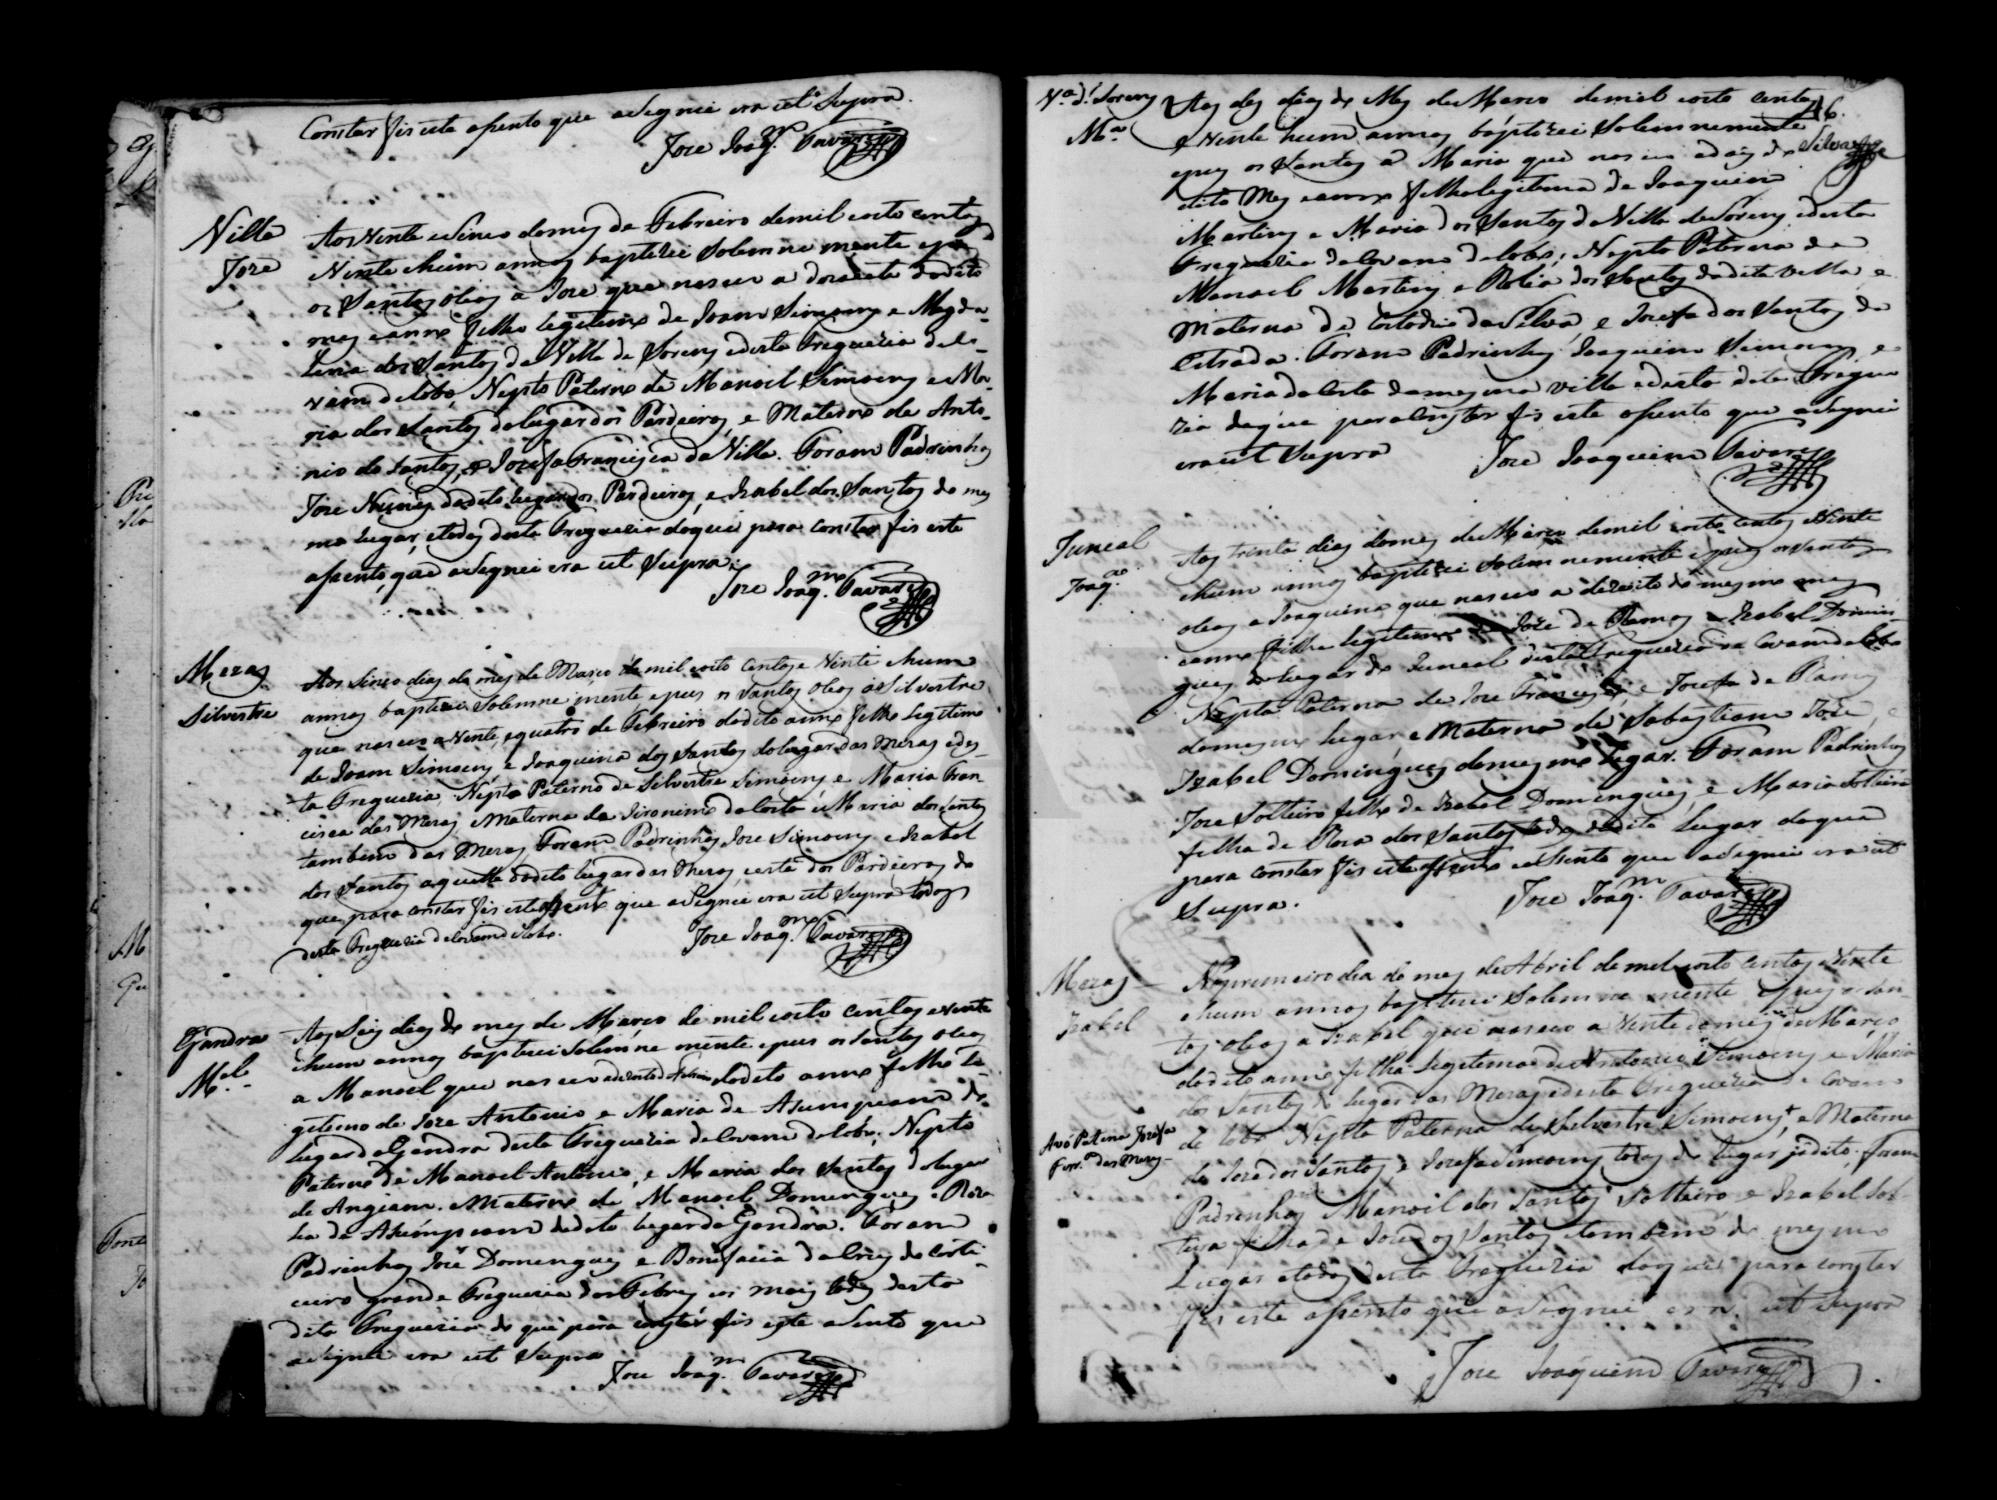 Constar fis este asento que asignei era ut Supra.
Joze Joaq.m Tavares
Villa
Joze
Aos Vinte e Sinco do mes de Febreiro de mil e oito centos
Vinte e hum annos baptizei Solemne mente e pus
os Santos oleos a Joze que nasceu a doze de dodito
mes e anno filho legitimo de Joam Simoens e Magda-
lena dos Santos da Villa de Soreens e desta Freguezia de Co-
vam de lobo, Nepto Paterno de Manoel Simoens e Ma-
ria dos Santos do lugar dos Pardeiros, e Materno de Anto-
nio do Santos, e Josefa Francisca da Villa. Foram Padrinhos
Joze Nunes do dito lugar dos Pardeiros, e Izabel dos Santos do mes
mo lugar, e todos desta Freguezia do que para constar fis este
asento, que asignei era ut Supra.
Joze Joaq.m Tavares
Mezas
Silvestre
Aos Sinco dias do mes de Março de mil e oito Centos e Vinte e hum
annos baptizei Solemne mente, e pus os Santos Oleos a Silvestre
que nasceu a Vinte, e quatro de Febreiro do dito anno filho Legitimo
de Joam Simoens, e Joaquina dos Santos do lugar das Mezas e des-
ta Freguezia, Nepto Paterno de Silvestre Simoens e Maria Fran-
cisca das Mezas e Materna de Jironimo da Costa e Maria dos Santos
tambem das Mezas, Foram Padrinhos Joze Simoens e Izabel
dos Santos aquelle do dito lugar das Mezas, e esta dos Pardieros do
que, para constar fis este asento que asignei era ut Supra todos
desta Freguezia de Covam de lobo.
Joze Joaq.m Tavares
Gandra
M.el
Aos Seis dias do mes de Março de mil e oito centos e vinte
e hum annos baptizei Solemne mente e pus os Santos Oleos
a Manoel que nasceu do dito anno filho Le-
gitimo de Joze Antonio e Maria de Asumpcam do
lugar da Gandra desta Freguezia de Covam de lobo; Nepto
Paterno de Manoel Antonio, e Maria dos Santos do lugar
de Angiam. Materno de Manoel Domingues e Roza
lia da Asumpcam do dito lugar da Gandra. Foram
Padrinhos Joze Domingues e Bonifacia da Crus de Corti-
ceiro grande Freguezia dos Febres os mais todos desta
dita Freguezia do que para constar fis este asento que
asignei era ut Supra
Joze Joaq.m Tavares
V.a d. Sorens
M.a
46.
Silva
Aos des dias do Mes de Marco de mil e oito centos
e Vinte e hum annos, baptizei Solemnemente
e pus os Santos a Maria que nasceu a do
dito Mes e anno filha legitima de Joaquim
Martins e Maria dos Santos da Villa de Sorens e desta
Freguezia de Covam de lobo; Nepta Paterna de
Manoel Martins e Rozia dos Santos da dita Villa, e
Materna de Custodio da Silva, e Josefa dos Santos da
Estrada. Foram Padrinhos Joaquim Simoens e
Maria da Costa da mesma Villa e desta dita Fregue
zia do que para constar fis este asento que asignei
era ut Supra
Joze Joaquim Tavares
Juncal
Joaq.a
Aos trinta dias do mes de Março de mil e oito centos e Vinte
e hum annos baptizei Solemnemente e pus os Santos
oleos a Joaquina que nasceu a dizoito do mesmo mes
e anno filha legitima de Joze de Ramos e Izabel Domin-
gues do lugar do Juncal desta Freguezia de Covam de lobo
Nepta Paterna de Joze Francisco, e Josefa de Ramos
do mesmo lugar, e Materna de Sabastiam Joze, e
Izabel Domingues do mesmo Lugar. Foram Padrinhos
Joze Solteiro filho de Izabel Domingues, e Maria Solteira
filha de Roza dos Santos todos do dito lugar do que
para constar fis este asento que asignei era ut
Supra.
Joze Joaq.m Tavares
Mezas
Izabel
No primeiro dia do mes de Abril de mil e oito centos e Vinte
e hum annos baptizei Solemne mente e pus os San-
tos oleos a Izabel que nasceu a Vinte do mes de Março
do dito anno filha Legitima de Antonio Simoens e Maria
dos Santos do lugar das Mezas e desta Freguezia de Covam
de lobo Nepta Paterna de Silvestre Simoens+, e Materna
de Joze dos Santos, e Josefa Simoens todos do lugar ja dito. Foram
Padrinhos Manoel dos Santos Solteiro e Izabel Sol-
teira filha de Joze dos Santos tambem do mesmo
Lugar e todos desta Freguezia do que para constar
fis este asento que asignei era ut supra
Avó Paterna Josefa
das Mezas
Joze Joaquim Tavares